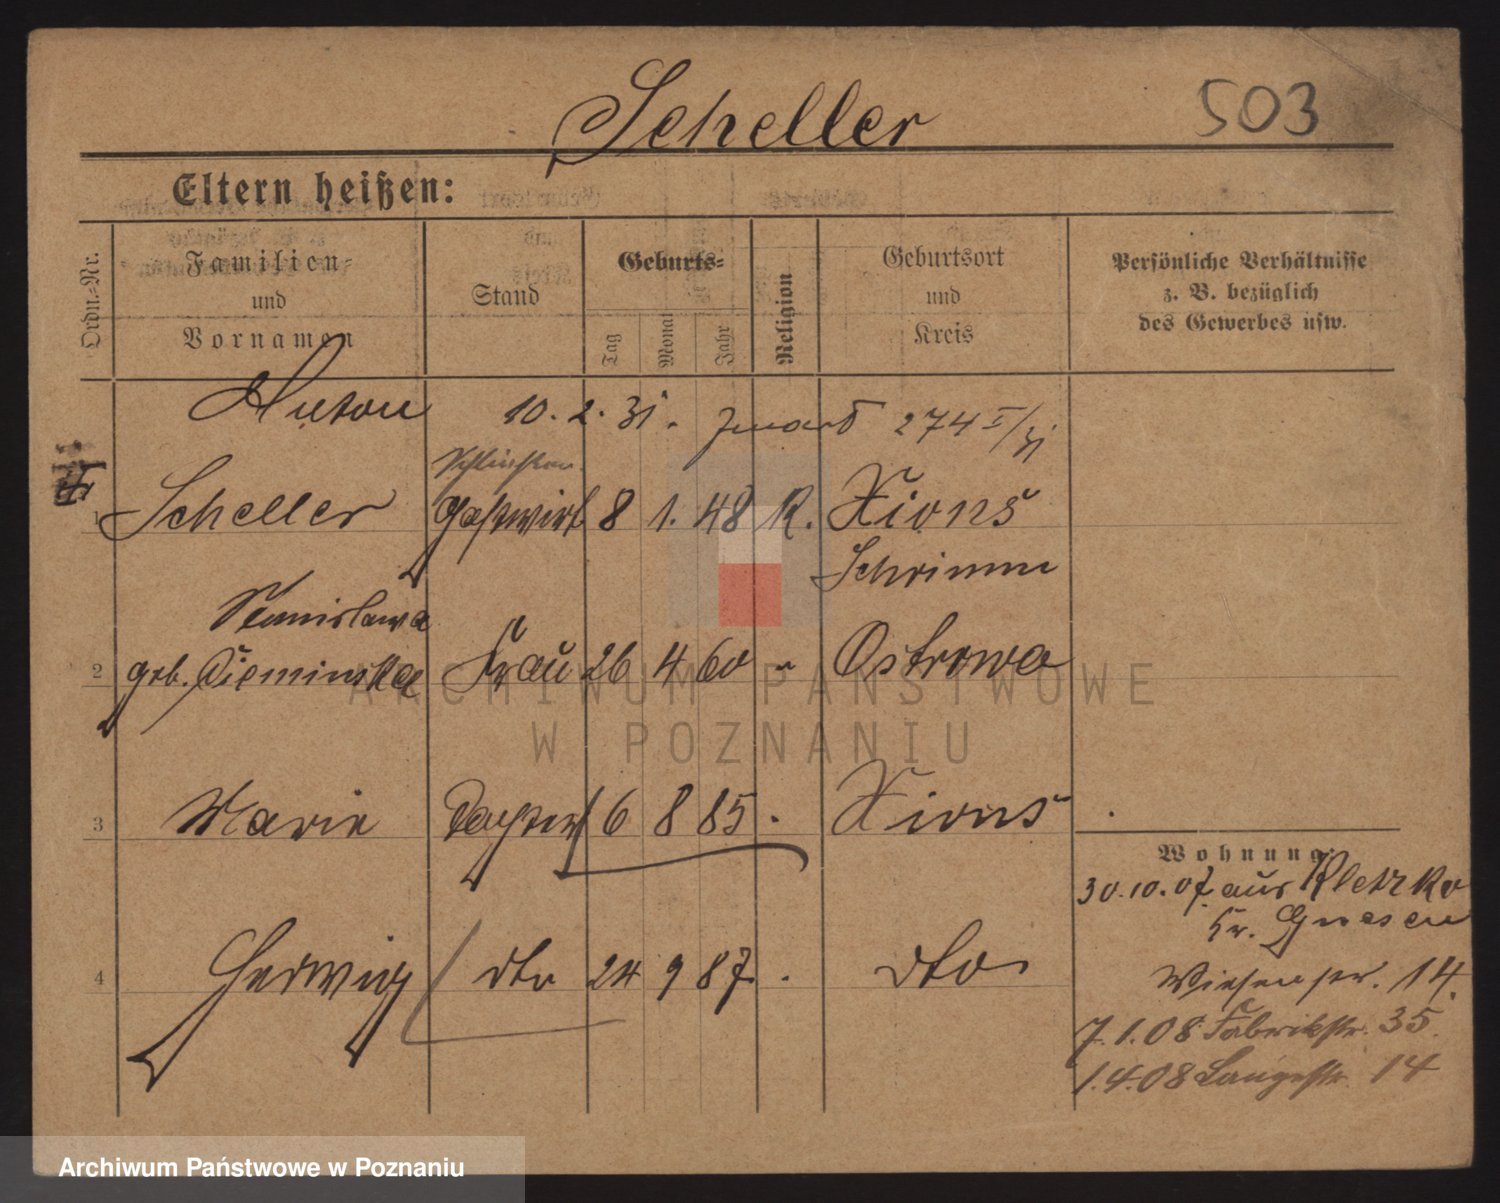 Scheller 503
Eltern heißen:
Ordn.-Nr.
Familien-
und
Vornamen
Stand
Geburts-
Tag
Monat
Jahr
Religion
Geburtsort
und
Kreis
Persönliche Verhältnisse
z. B. bezüglich
des Gewerbes usw.
Anton 10. 2. 31. zmarł 274 I/31
1 Scheller Gastwirt 8 1. 48 K. Xions
Schrimm
Stanislawa
2 geb. Frau 26 4 60 " Ostrowo
3 Marie Tochter 6 8 85 . Xions
4 Hedwig dto 24 9 87 . dto
Wohnung:
30.10.07 aus Kletzko
Kr. Gnesen
Wiesenstr. 14.
7.1.08 Fabrikstr. 35.
1.4.08 Langestr. 14
ARCHIWUM PAŃSTWOWE
W POZNANIU
Archiwum Państwowe w Poznaniu